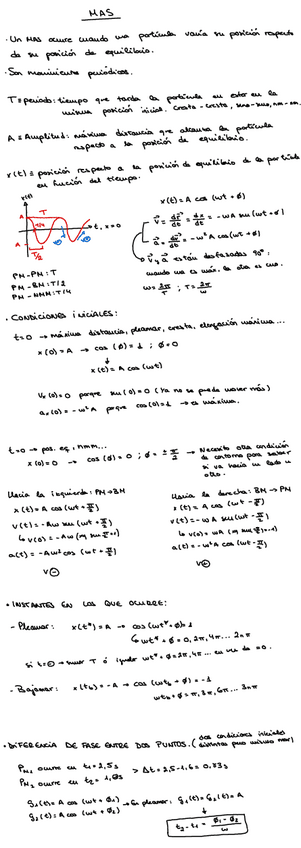 MAS
· Un MAS ocurre cuando una partícula varía su posición respecto
de su posición de equilibrio.
· Son movimientos periódicos.
T ≡ periodo: tiempo que tarda la partícula en estar en la
misma posición inicial. Cresta - cresta,
A ≡ Amplitud: máxima distancia que alcanza la partícula
respecto a la posición de equilibrio.
x(t) ≡ posición respecto a la posición de equilibrio de la partícula
en función del tiempo.
x(t)
T
A
t, x=0
A
T/2
PM-PM: T
PM-BM: T/2
PM-NMM: T/4
x(t) = A cos (ωt + ϕ)
v = dr/dt = dx/dt = -ωA sen (ωt + ϕ)
a = dv/dt = -ω²A cos (ωt + ϕ)
v y a están desfasadas 90°:
cuando una es máx. la otra es cero.
ω = 2π/T ; T = 2π/ω
· CONDICIONES INICIALES:
t=0 → máxima distancia, pleamar, cresta, elongación máxima...
x(0) = A → cos (ϕ) = 1 ; ϕ = 0
x(t) = A cos (ωt)
Vx(0) = 0 porque sen(0) = 0 (Ya no se puede mover más)
ax(0) = -ω²A porque cos(0) = 1 → es máxima.
t=0 → pos. eq, nmm...
x(0) = 0 → cos (ϕ) = 0 ; ϕ = ± π/2 → Necesito otra condición
de contorno para saber
si va hacia un lado u
otro.
Hacia la izquierda: PM→BM
x(t) = A cos (ωt + π/2)
v(t) = -Aω sen (ωt + π/2)
a(t) = -Aω² cos (ωt + π/2)
v⊖
Hacia la derecha: BM → PM
x(t) = A cos (ωt - π/2)
v(t) = -ωA sen (ωt - π/2)
a(t) = -ω²A cos (ωt - π/2)
v⊕
· INSTANTES EN LOS QUE OCURRE:
- Pleamar: x(t*) = A → cos (ωt* + ϕ) = 1
ωt* + ϕ = 0, 2π, 4π... 2nπ
si t=⊖ → sumar T ó igualar ωt* + ϕ = 2π, 4π... en vez de =0.
- Bajamar: x(tb) = -A → cos (ωtb + ϕ) = -1
· DIFERENCIA DE FASE ENTRE DOS PUNTOS. (dos condiciones iniciales
distintas pero mismo mar)
PM1 ocurre en t1 = 2,5s
PM2 ocurre en
g1(t) = A cos (ωt + ϕ1)
g2(t) = A cos (ωt + ϕ2) → En pleamar: g1(t) = g2(t) = A